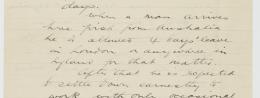 days.
When a man arrives
here fresh from Australia
he is allowed 4 days leave
in London or anywhere in
England for that matter.
After that he is expected
to settle down earnestly to
work with only occasional